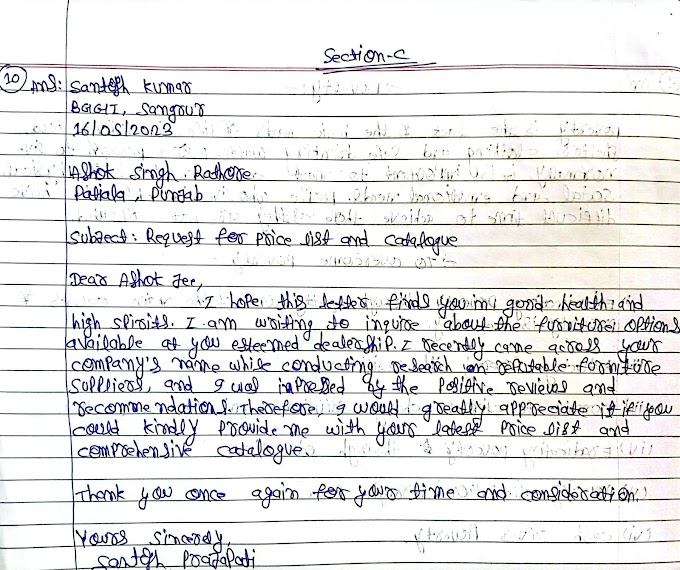 Section-C
10 ans: Santosh Kumar
BGGI, Sangrur
16/05/2023
Ashok Singh Rathore
Patiala, Punjab
Subject: Request for price list and catalogue
Dear Ashok Jee,
I hope this letter finds you in good health and
high spirits. I am writing to inquire about the furniture options
available at you esteemed dealership. I recently came across your
company's name while conducting research on reputable furniture
suppliers, and I was impressed by the positive reviews and
recommendations. Therefore, I would greatly appreciate it if you
could kindly provide me with your latest price list and
comprehensive catalogue.
Thank you once again for your time and consideration.
Yours sincerely,
Santosh Prajapati